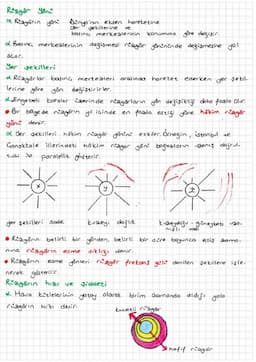 Rüzgâr Yönü
Rüzgârın yönü Dünya'nın eksen hareketine
yer şekillerine ve
basınç merkezlerinin konumuna göre değişir.
Basınç merkezlerinin değişmesi rüzgâr yönününde değişmesine yol
açar.
Yer şekilleri
Rüzgârlar basınç merkezleri arasında hareket ederken yer şekil
lerine göre yön değiştirirler.
Engebeli karalar üzerinde rüzgârların yön değişikliği daha fazla olur.
Bir bölgede rüzgârın yıl içinde en fazla estiği yöne hâkim rüzgâr
yönü denir.
Yer şekilleri hâkim rüzgâr yönünü etkiler. Örneğin, İstanbul ve
Çanakkale illerindeki hâkim rüzgâr yönü boğazların uzanış doğrul-
tusu ile paralellik gösterir.
x y z
yer şekilleri sade kuzeyi dağlık kuzeydoğu - güneybatı
Rüzgârın belirli bir yönden belirli bir süre boyunca esiş
rüzgârın esme sıklığı denir.
Rüzgârın esme yönleri rüzgâr frekans gülü denilen şekillere işle-
nerek gösterilir.
Rüzgârın hızı ve şiddeti
Hava kütlelerinin yatay olarak birim zamanda aldığı yola
rüzgârın hızı denir.
kuvvetli rüzgâr
hafif rüzgâr